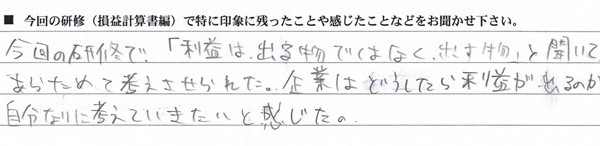 ■ 今回の研修（損益計算書編）で特に印象に残ったことや感じたことなどをお聞かせ下さい。
今回の研修で、「利益は、出る物ではなく、出す物」と聞いて
あらためて考えさせられた。企業はどうしたら利益が出るのか
自分なりに考えていきたいと感じた。